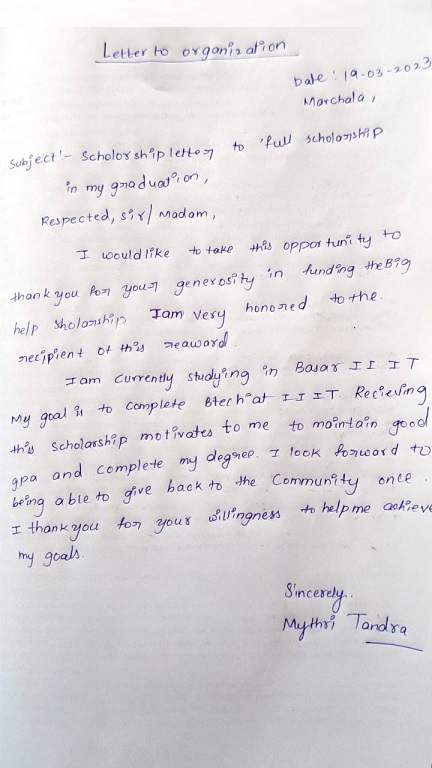 Letter to organization
Date : 19-03-2023
Marchala,
Subject :- Scholorship letter to 'full scholarship
in my graduation,
Respected, sir/ Madam,
I would like to take this opportunity to
thank you for your generosity in funding the Big
help Sholarship I am very honored to the
recipient of this reaward.
I am currently studying in Basar II IT
My goal is to complete Btech at IIIT. Recieving
this scholarship motivates to me to maintain good
gpa and complete my degree. I look forward to
being able to give back to the Community once.
I thank you for your willingness to help me achieve
my goals.
Sincerely..
Mythri Tandra